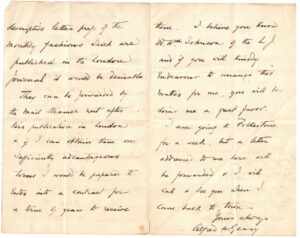 descriptive letter press of the
monthly fashions which are
published in the London
Journal it would be desirable
They can be forwarded by
the mail steamer next after
the publication in London
& if I can obtain them on
sufficiently advantageous
terms I would be prepared to
enter into a contract for
a term of years to receive
them. I believe you know
Dr Wm Johnson of the L.J.
and if you will kindly
endeavour to arrange this
matter for me you will be
doing me a great favor.
I am going to Folkestone
for a week, but a letter
addressed to me here will
be forwarded & I will
call & see you when I
come back to town
Yours always
Alfred Geary